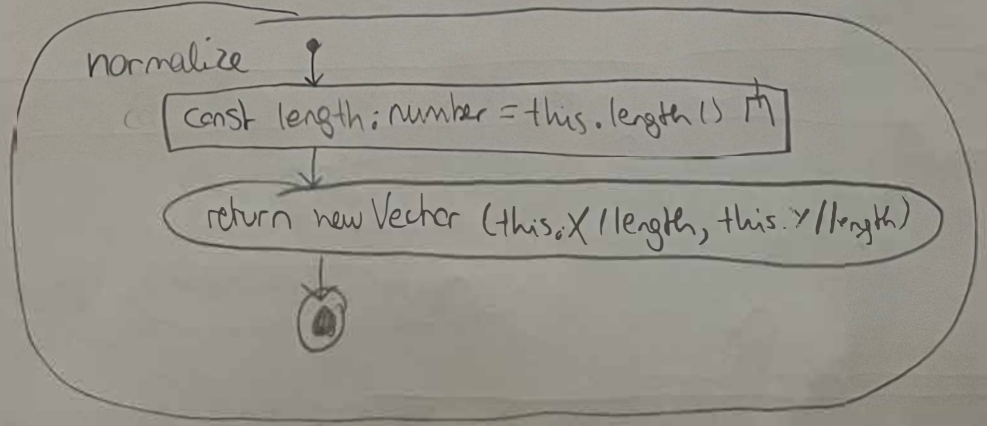 normalize
const length: number = this.length()
return new Vector (this.X/length, this.Y/length)